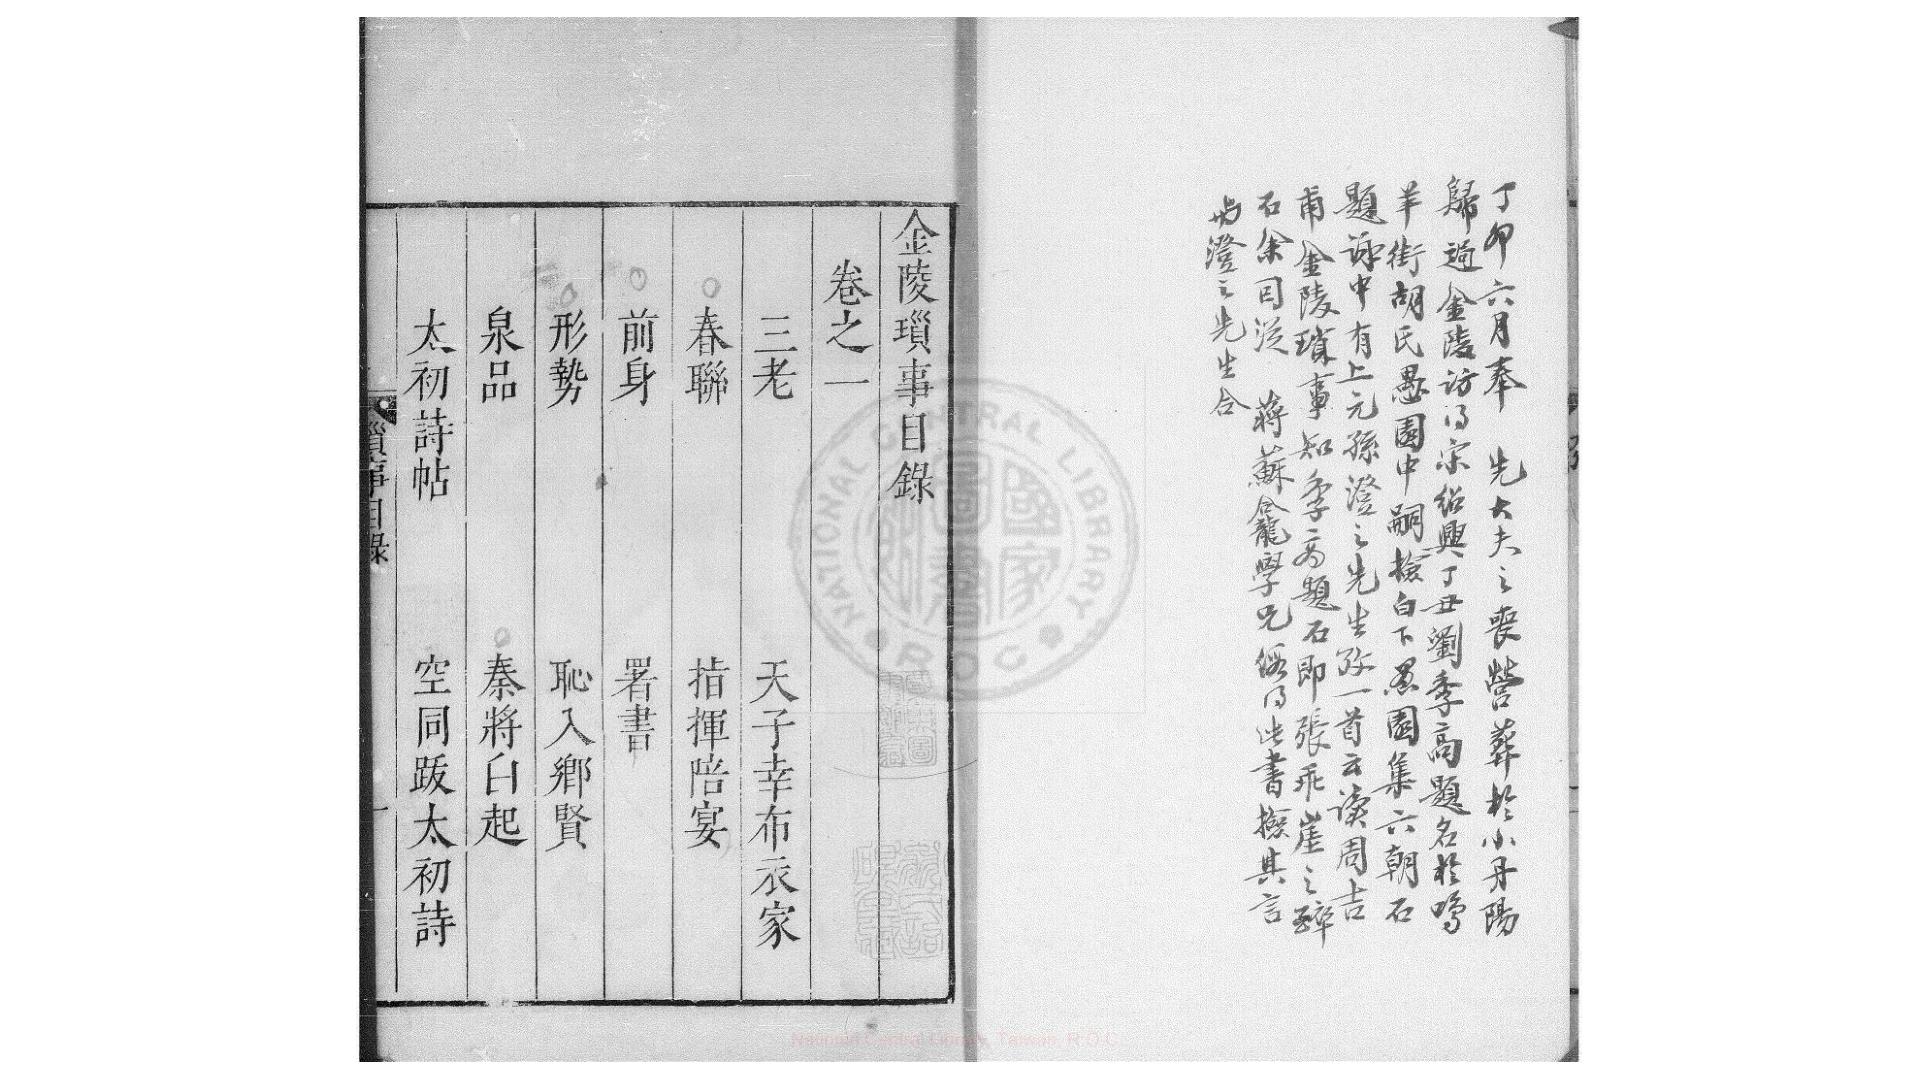 丁卯六月奉 先大夫之喪營葬於小丹陽
歸過金陵訪得宋紹興丁丑劉季高題名於鳴
羊街胡氏愚園中嗣檢白下愚園集六朝石
題詠中有上元孫澄之先生文一首云讀周吉
甫金陵瑣事知季高題石即張乖崖之醉
石余因從 蔣蘇盦龍學兄假得此書撿其言
與澄之先生合
金陵瑣事目錄
卷之一
三老 天子幸布衣家
春聯 指揮陪宴
前身 署書
形勢 恥入鄉賢
泉品 秦將白起
太初詩帖 空同跋太初詩
瑣事目錄 一
NATIONAL CENTRAL LIBRARY R O C
國家圖書館
National Central Library, Taiwan, R.O.C.